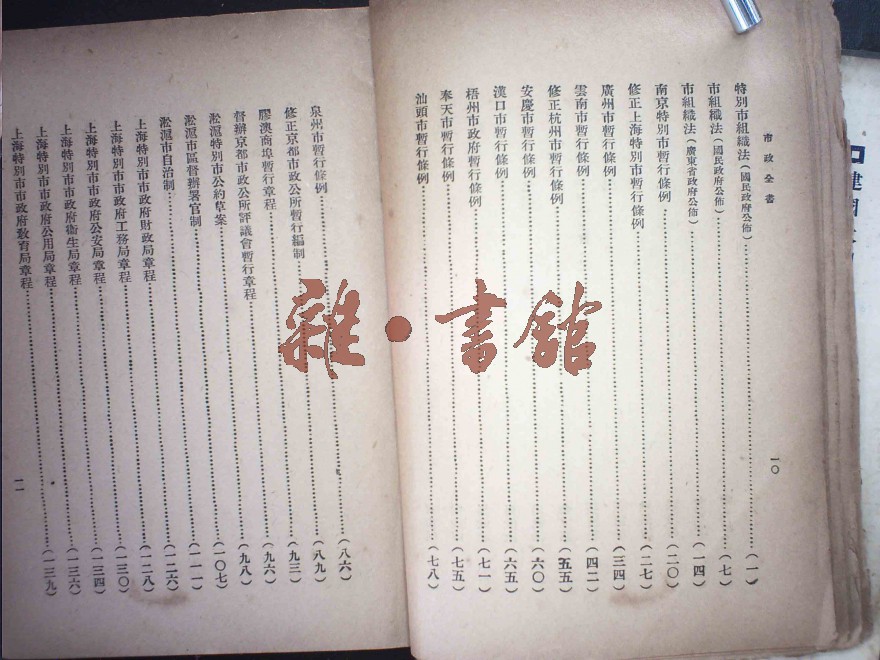 市政全書
一〇
特別市組織法（國民政府公佈）……（一）
市組織法（國民政府公佈）……（七）
市組織法（廣東省政府公佈）……（一四）
南京特別市暫行條例……（二〇）
修正上海特別市暫行條例……（二七）
廣州市暫行條例……（三四）
雲南市暫行條例……（四二）
修正杭州市暫行條例……（五五）
安慶市暫行條例……（六〇）
漢口市暫行條例……（六五）
梧州市政府暫行條例……（七一）
奉天市暫行條例……（七五）
汕頭市暫行條例……（七八）
泉州市暫行條例……（八六）
修正京都市政公所暫行編制……（八九）
膠澳商埠暫行章程……（九三）
督辦京都市政公所評議會暫行章程……（九六）
淞滬特別市公約草案……（九八）
淞滬市區督辦署官制……（一〇七）
淞滬市自治制……（一一一）
上海特別市市政府財政局章程……（一二六）
上海特別市市政府工務局章程……（一二八）
上海特別市市政府公安局章程……（一三〇）
上海特別市市政府衞生局章程……（一三四）
上海特別市市政府公用局章程……（一三六）
上海特別市市政府教育局章程……（一三九）
一一
雜·書館